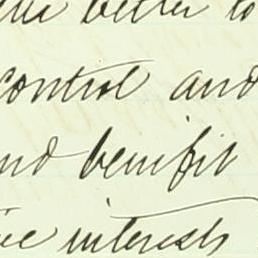 better to
control and
nd benifit
interests